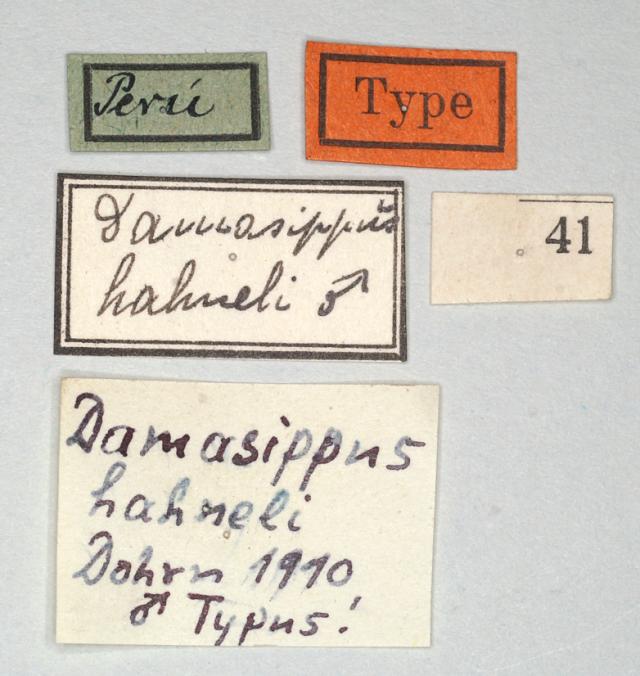 Perú
Type
Damasippus
hahneli ♂
41
Damasippus
hahneli
Dohrn 1910
♂ Typus!